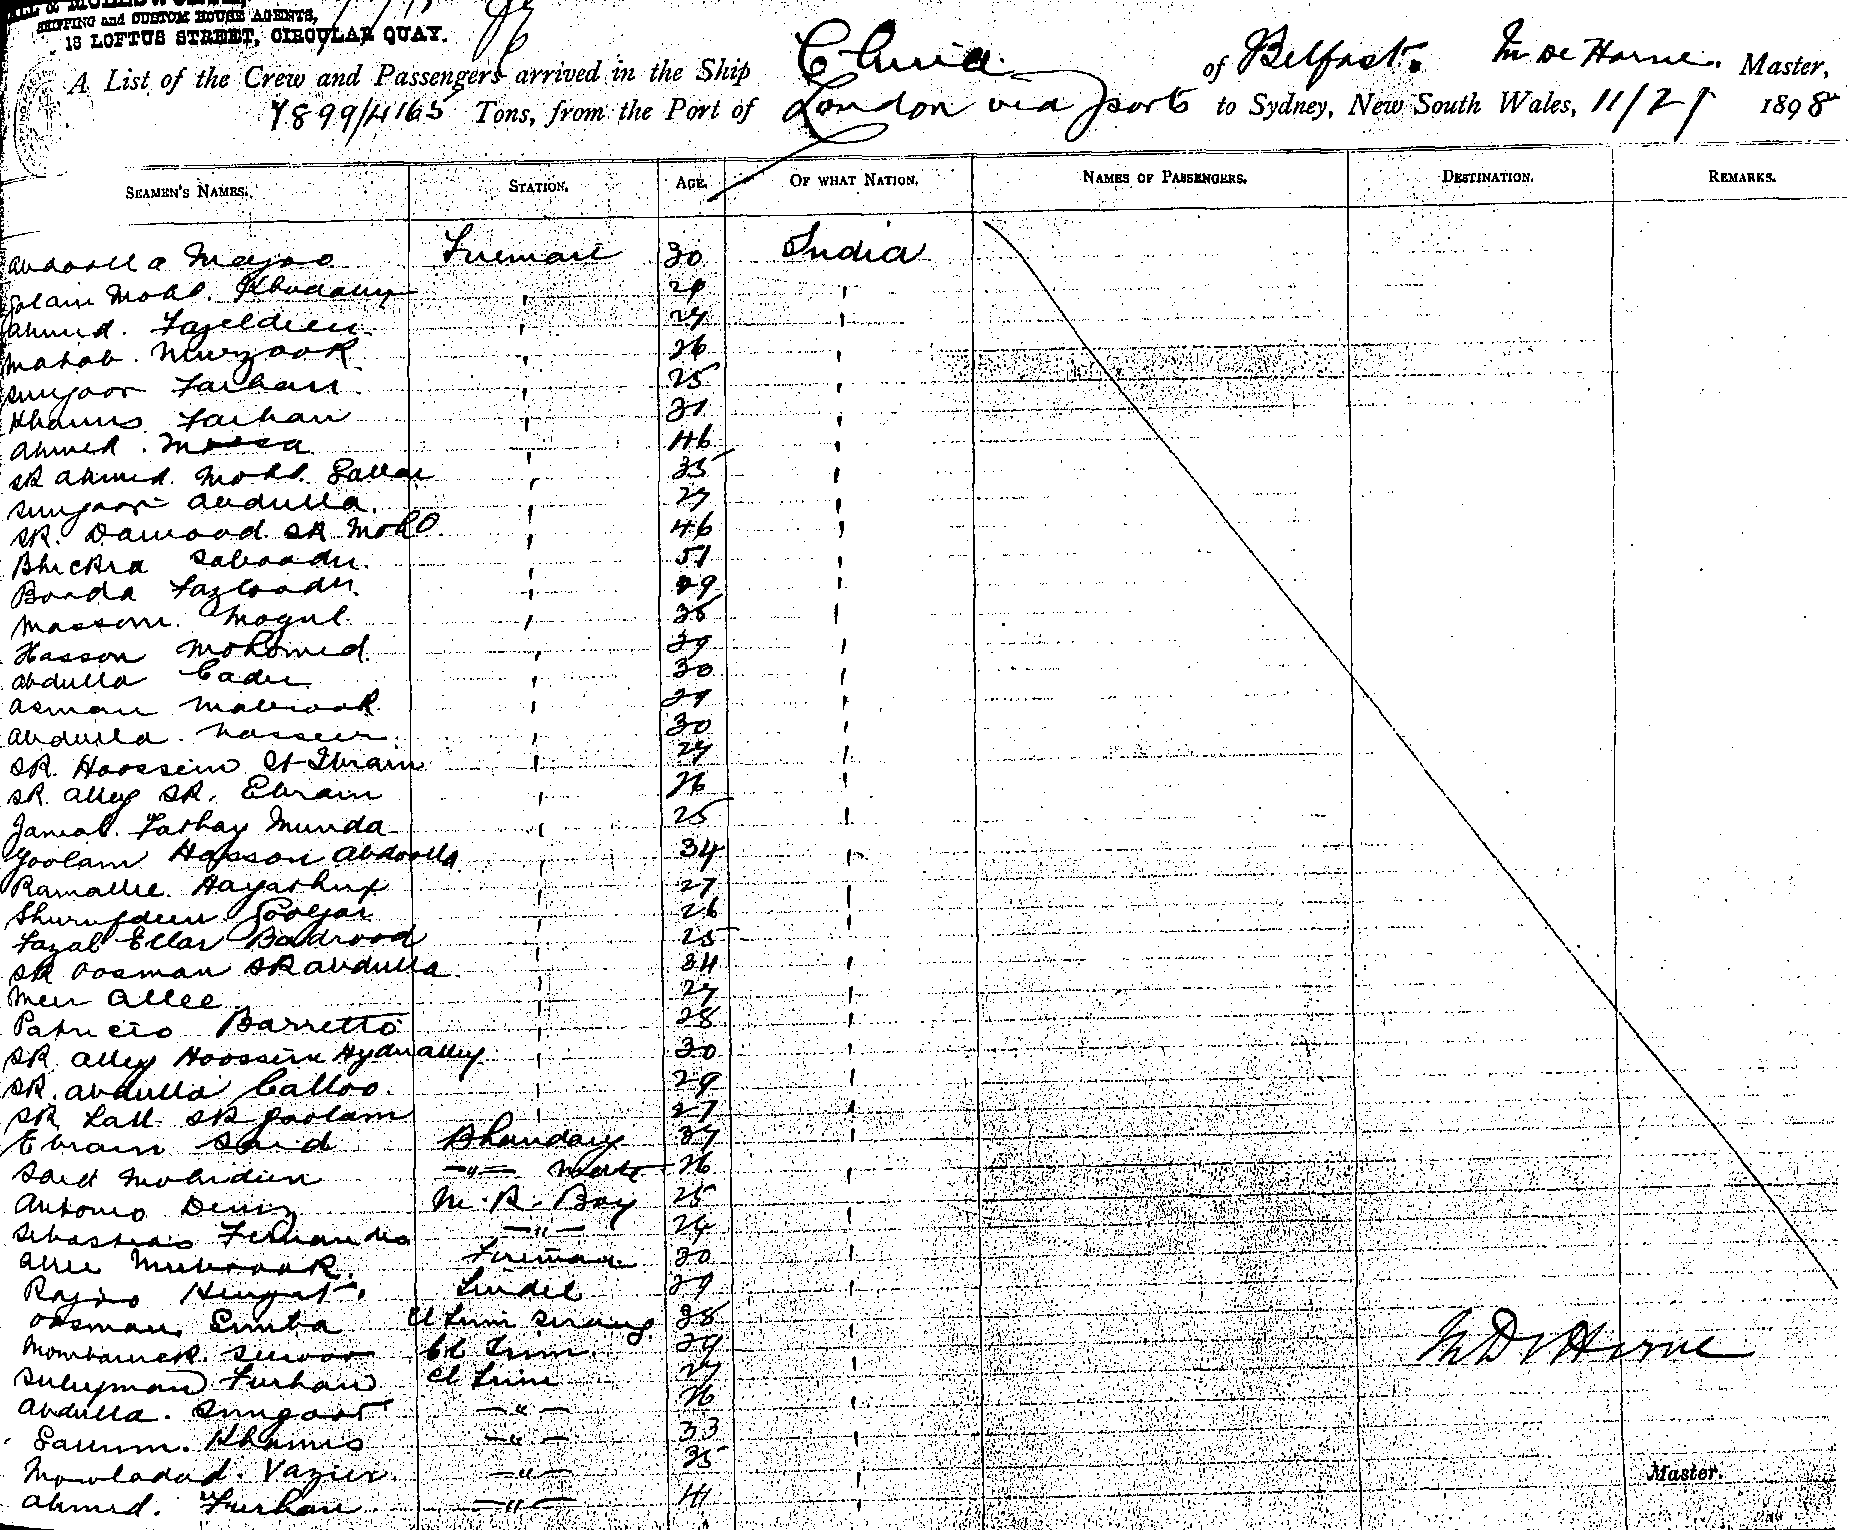 SHIPPING and CUSTOM HOUSE AGENTS,
13 LOFTUS STREET, CIRCULAR QUAY.
A List of the Crew and Passengers arrived in the Ship China of Belfast. M De Horne. Master,
7899/4165 Tons, from the Port of London via ports to Sydney, New South Wales, 11/2/ 1898
SEAMEN'S NAMES. STATION. AGE. OF WHAT NATION. NAMES OF PASSENGERS. DESTINATION. REMARKS.
Abdoolla Majoo Fireman 30 India
Golam Mohd. " "
Ahmed. Fazeldeen " 27 "
Mahab. Murzook " 26 "
Sungoor Farhan " 25 "
Khamis Farhan " 31 "
Ahmed. Moosa " 46 "
SK Ahmed. Mohd. " 35 "
Sungoor Abdulla. " 27 "
SK. Dawood SK Mohd. " 46 "
Bhickra " 51 "
Banda " 29 "
Massom. Mogul " 35 "
Hasson Mohomed. " 39 "
Abdulla Cader " 30 "
Asman Mabrook " 29 "
Abdulla. Nasseer. " 30 "
SK. Hoossein SK Ibraim " 27 "
SK. Alley SK. Ebraim " 26 "
Jamal. Munda " 25 "
Goolam Hasson Abdoolla " 34 "
Ramallie. " 27 "
Shurufdeen " 26 "
Fazal Ellar Badrood " 25 "
SK Oosman SK Abdulla. " 34 "
Meer Allee " 27 "
Patricio Barretto " 28 "
SK Alley Hoossein Hyder Alley " 30 "
SK. Abdulla Calloo. " 29 "
SK Lall SK Goolam " 27 "
Ebraim Said Bhandary 37 "
Said Mohideen —"— Mate 26 "
Antonio Deniz M. R. Boy 25 "
Sebastiao Fernandes —"— 24 "
Allee Mubrook. Fireman 30 "
Rajoo Tindel 39 "
Oosman Simba Cl Trim Serang 38 "
Mombarick. Suroor Cl Trim. 29 "
Suleyman Furhan Cl Trim 27 "
Abdulla. Sungoor —"— 26 "
Sallim. Khamis —"— 33 "
Mowladad. Vazier. —"— 35 "
Ahmed. Furhan —"— 41 "
M De Horne
Master.